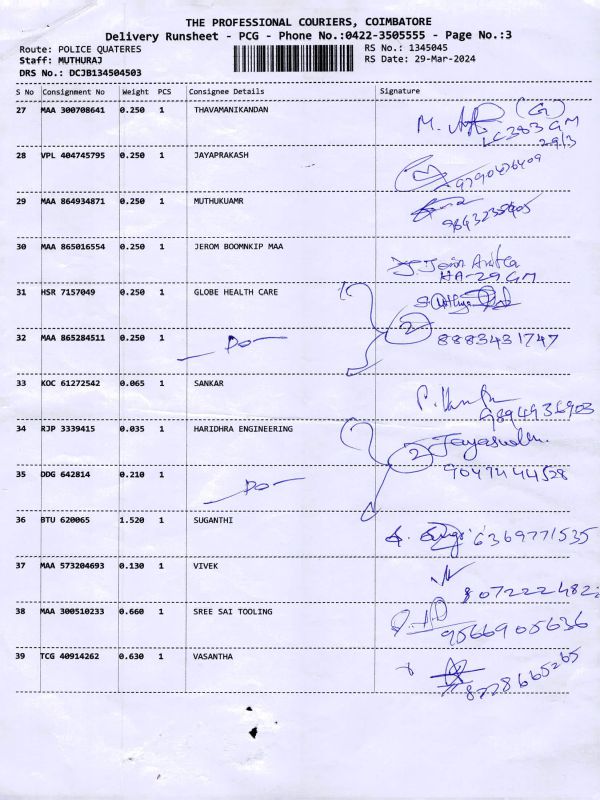 THE PROFESSIONAL COURIERS, COIMBATORE
Delivery Runsheet - PCG - Phone No.:0422-3505555 - Page No.:3
Route: POLICE QUATERES
RS No.: 1345045
Staff: MUTHURAJ
RS Date: 29-Mar-2024
DRS No.: DCJB134504503
S No Consignment No Weight PCS Consignee Details Signature
27 MAA 300708641 0.250 1 THAVAMANIKANDAN
M. (G)
LC383 GM
29/3
28 VPL 404745795 0.250 1 JAYAPRAKASH
9790476409
29 MAA 864934871 0.250 1 MUTHUKUAMR
30 MAA 865016554 0.250 1 JEROM BOOMNKIP MAA
HA-29 GM
31 HSR 7157049 0.250 1 GLOBE HEALTH CARE
32 MAA 865284511 0.250 1 — Do — 2 8883431747
33 KOC 61272542 0.065 1 SANKAR
9894936903
34 RJP 3339415 0.035 1 HARIDHRA ENGINEERING
2
35 DDG 642814 0.210 1 — Do — 9047444528
36 BTU 620065 1.520 1 SUGANTHI 6369771535
37 MAA 573204693 0.130 1 VIVEK
807222482
38 MAA 300510233 0.660 1 SREE SAI TOOLING
9566905636
39 TCG 40914262 0.630 1 VASANTHA
8778665265